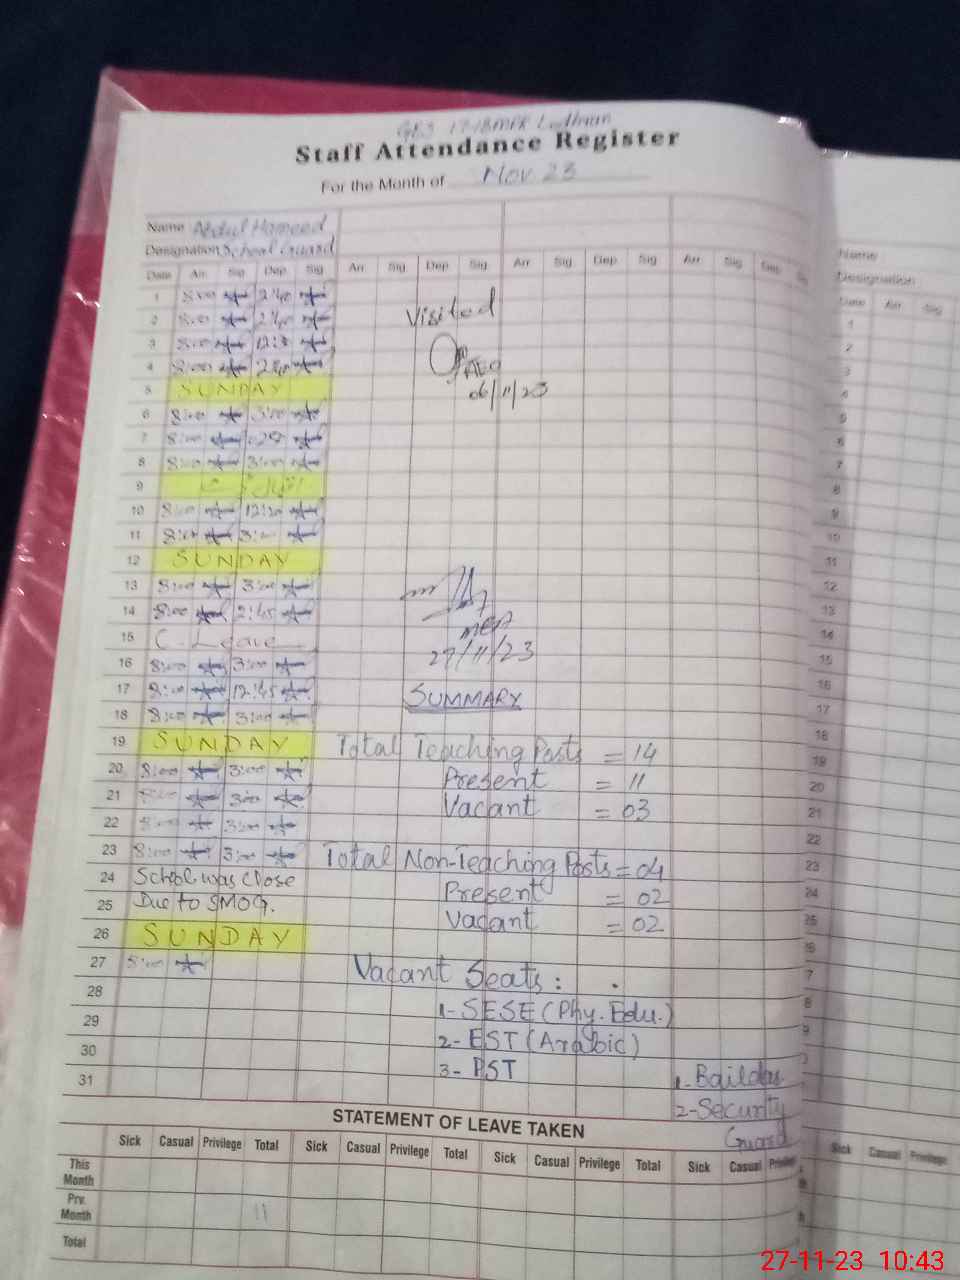 GES 17-18MPR Lodhran
Staff Attendance Register
For the Month of Nov 23
Name Abdul Hameed
Designation School Guard
Date Arr. Sig Dep. Sig Arr Sig Dep Sig Arr Sig Dep Sig Arr Sig Dep Sig
1 8:00 2:40
2 8:00 2:40 Visited
3 8:00
4 8:00 AEO
5 SUNDAY 06/11/23
6 8:00 3:00
7 8:00
8 8:00 3:00
9
10 8:00
11 8:00 3:00
12 SUNDAY
13 8:00 3:00
14 8:00 2:45 MEA
15 C. Leave 27/11/23
16 8:00 3:00
17 8:00 12:45 SUMMARY
18 8:00 3:00
19 SUNDAY Total Teaching Posts = 14
20 8:00 3:00 Present = 11
21 8:00 3:00 Vacant = 03
22 8:00 3:00
23 8:00 3:00 Total Non-Teaching Posts = 04
24 School was Close Present = 02
25 Due to SMOG. Vacant = 02
26 SUNDAY
27 8:00 Vacant Seats:
28 1- SESE (Phy. Edu.)
29 2- EST (Arabic)
30 3- PST
31 1-Baildar
2-Security
Guard
STATEMENT OF LEAVE TAKEN
Sick Casual Privilege Total Sick Casual Privilege Total Sick Casual Privilege Total Sick Casual Privilege
This Month
Prv. Month 11
Total
Name
Designation
Date Arr Sig
1
2
3
4
5
6
7
8
9
10
11
12
13
14
15
16
17
18
19
20
21
22
23
24
25
Sick Casual Privilege
27-11-23 10:43